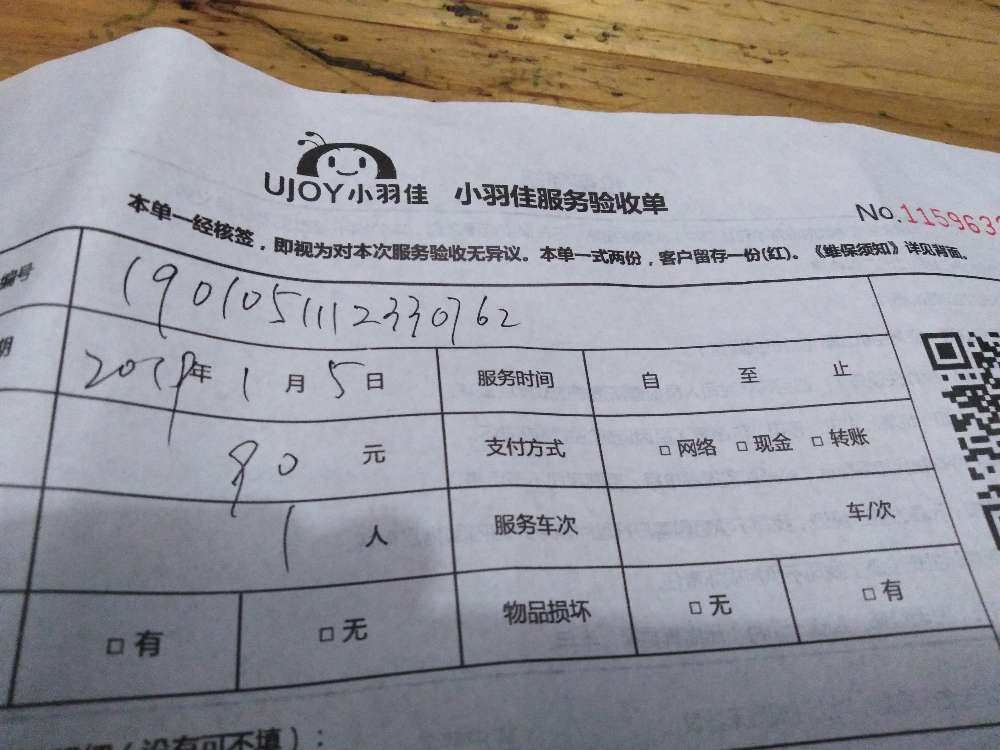 UJOY小羽佳 小羽佳服务验收单
No.1159630
本单一经核签，即视为对本次服务验收无异议。本单一式两份，客户留存一份(红)。《维保须知》详见背面。
编号 1901051112330762
期 2019年 1月 5日 服务时间 自 至 止
90 元 支付方式 □ 网络 □ 现金 □ 转账
1 人 服务车次 车/次
□ 有 □ 无 物品损坏 □ 无 □ 有
(没有可不填)：